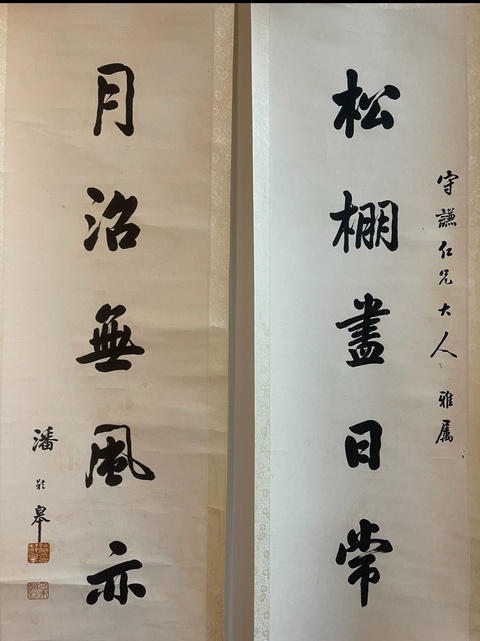 守謙仁兄大人 雅屬
松棚盡日常
月沼無風亦
潘齡皋